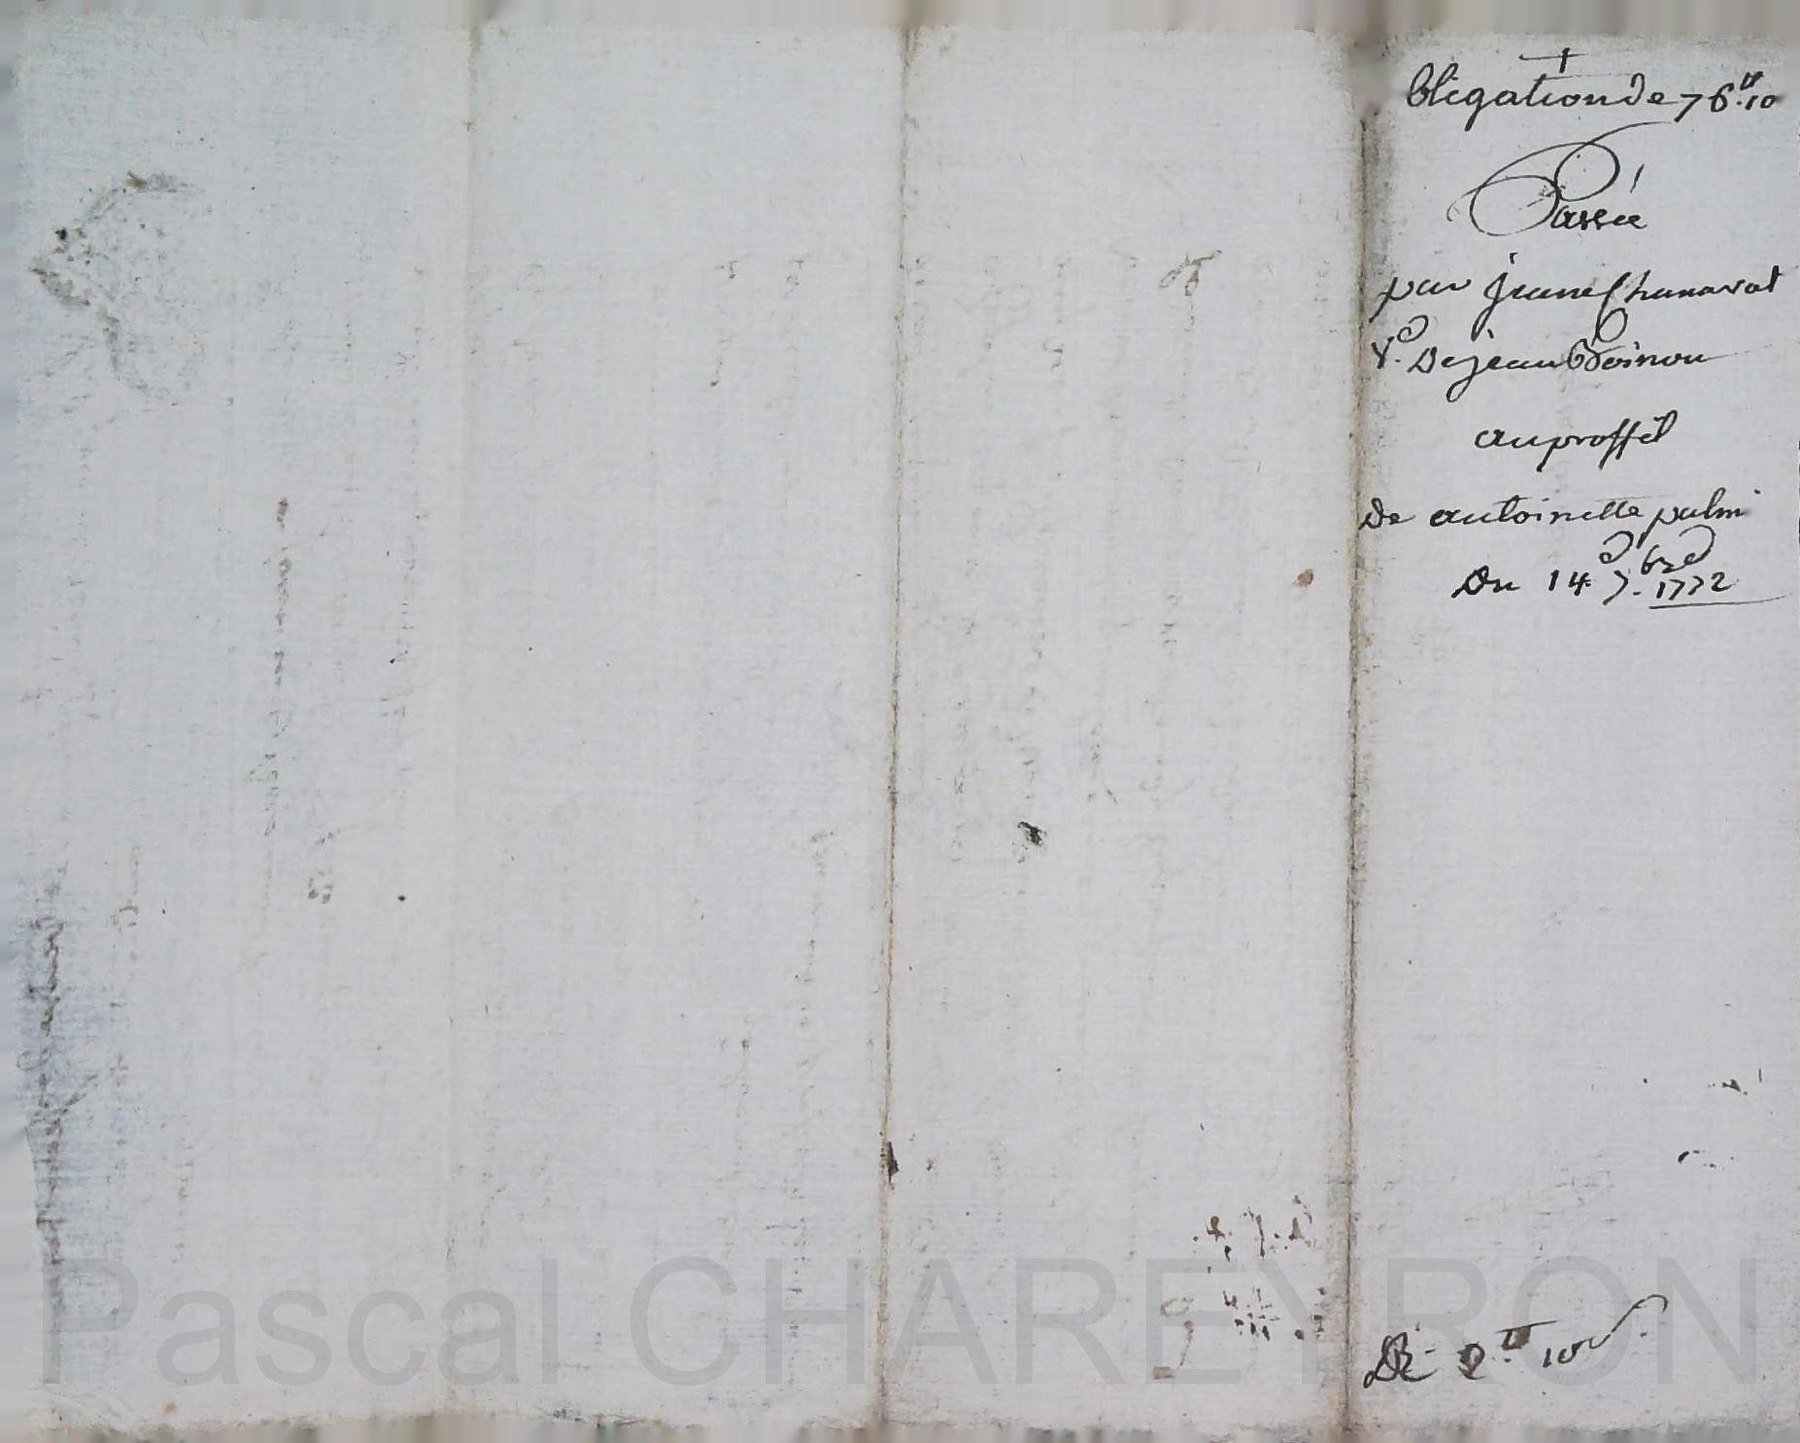 obligation de 76.tt 10
Passée
par jeanne Chanavat
Ve. De jean Boisnon
au proffit
De antoinette palmi
Du 14e. 7.bre 1772
2.tt 10 s.
Pascal CHAREYRON